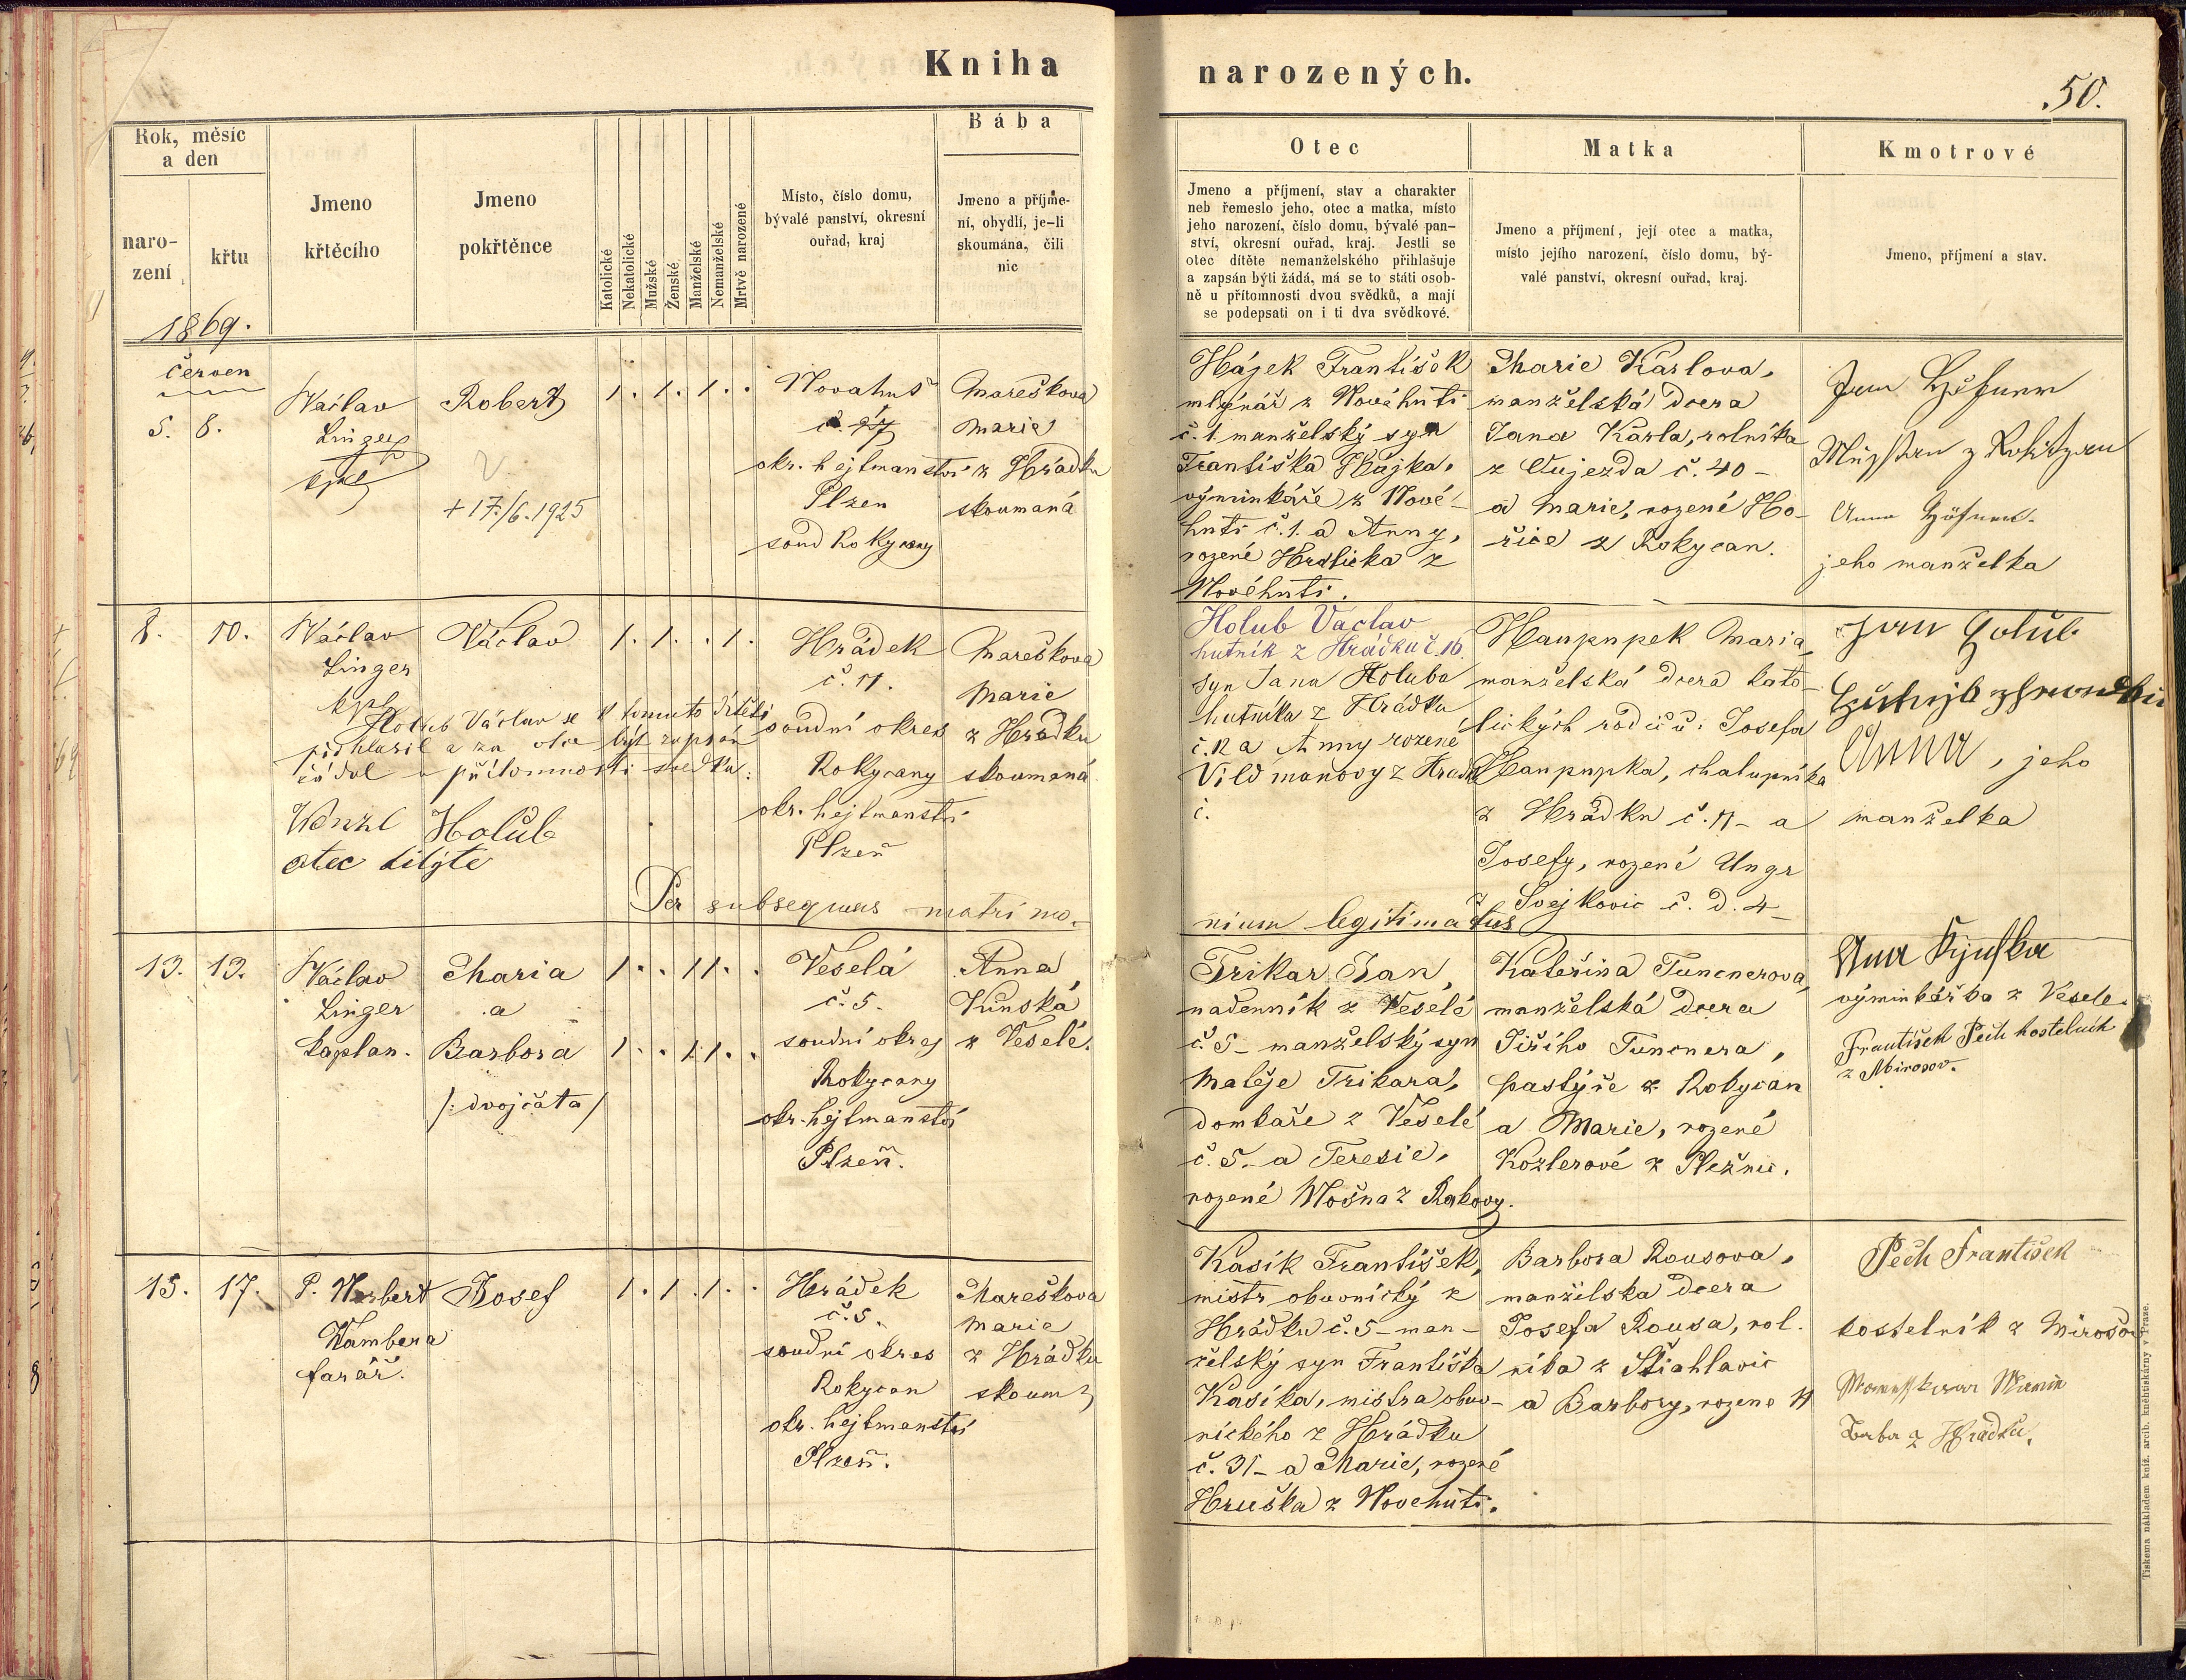 Kniha
narozených.
50.
Rok, měsíc
a den
naro-
zení
křtu
Jmeno
křtěcího
Jmeno
pokřtěnce
Katolické
Nekatolické
Mužské
Ženské
Manželské
Nemanželské
Mrtvě narozené
Místo, číslo domu,
bývalé panství, okresní
ouřad, kraj
Bába
Jmeno a příjme-
ní, obydlí, je-li
skoumána, čili
nic
Otec
Jmeno a příjmení, stav a charakter
neb řemeslo jeho, otec a matka, místo
jeho narození, číslo domu, bývalé pan-
ství, okresní ouřad, kraj. Jestli se
otec dítěte nemanželského přihlašuje
a zapsán býti žádá, má se to státi osob-
ně u přítomnosti dvou svědků, a mají
se podepsati on i ti dva svědkové.
Matka
Jmeno a příjmení, její otec a matka,
místo jejího narození, číslo domu, bý-
valé panství, okresní ouřad, kraj.
Kmotrové
Jmeno, příjmení a stav.
1869.
červen
5. 8.
Václav
Linger
kpl
Robert
+ 17./6. 1925
1. 1. 1. .
Novahuť
okr. hejtmanství
Plzen
soud Rokycany
Mareškova
Marie
z Hrádku
skoumaná
Hájek František
mlýnář z Novéhuti
č. 1 manželský syn
Františka Hájka,
výminkáře z Nové-
huti č. 1. a Anny,
rozené Hrdlička z
Novéhuti.
Marie Karlova,
manželská dcera
Jana Karla, rolníka
z Oujezda č. 40 -
a Marie, rozené Ho-
řice z Rokycan.
jeho manželka
8. 10.
Václav
Linger
kpl
Václav
1. 1. . 1.
Hrádek
č. 11.
soudní okres
Rokycany
okr. hejtmanství
Plzeň
Mareškova
Marie
z Hrádku
skoumaná
Holub Václav se k tomuto dítěti
přihlasil a za otce býti zapsán
žádal u přítomnosti svědků:
Wenzl Holub
otec ditýte
Per subsequens matrimo-
nium legitimatus
Holub Václav
hutník z Hrádku č. 16.
syn Jana Holuba
hutníka z Hrádku
č. 12 a Anny rozené
Vildmanovy z Hrádku
č.
Haupnpek Maria,
manželská dcera kato-
lických rodičů: Josefa
Haupnpka, chalupníka
z Hrádku č. 11 - a
Josefy, rozené Ungr
z Svejkovic č. d. 4 -
Jan Holub
Anna, jeho
manželka
13. 13.
Václav
Linger
kaplan.
Maria
a
Barbora
/: dvojčata /
1. . 1 1. .
1. . 1 1. .
Veselá
č. 5.
soudní okres
Rokycany
okr. hejtmanství
Plzeň.
Anna
Vůnská
z Veselé.
Trikar Jan,
nadenník z Veselé
č. 5 - manželský syn
Matěje Trikara,
domkaře z Veselé
č. 5. - a Teresie,
rozené Mošna z Rakovy.
Kateřina Tuncnerova,
manželská dcera
Jiřího Tuncnera,
pastýře z Rokycan
a Marie, rozené
Kozlerové z Plezně.
výminkářka z Veselé.
František Pech kostelník
z Mirosov.
15. 17.
P. Norbert
Wambera
farář.
Josef
1. 1. 1. .
Hrádek
č. 5.
soudní okres
Rokycan
okr. hejtmanství
Plzeň.
Mareškova
Marie
z Hrádku
skoum
Kasík František,
mistr obuvnický z
Hrádku č. 5 - man-
želský syn Františka
Kasíka, mistra obuv-
nického z Hrádku
č. 31 - a Marie, rozené
Hruška z Novehuti.
Barbora Rousova,
manželska dcera
Josefa Rousa, rol-
níka z Štiahlavic
a Barbory, rozene N
Pech František
kostelník z Mirošov
z Hrádku.
Tiskema nákladem kníž. arcib. kněhtiskárny v Praze.